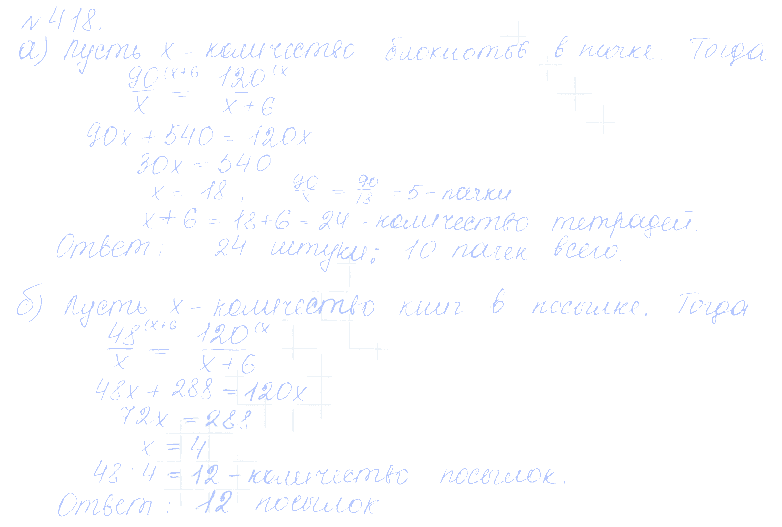 №418.
а) Пусть x - количество блокнотов в пачке. Тогда
90^(x+6 / x = 120^(x / x+6
90x + 540 = 120x
30x = 540
x = 18, 90/x = 90/18 = 5 - пачки
x + 6 = 18 + 6 = 24 - количество тетрадей.
Ответ: 24 штуки; 10 пачек всего.
б) Пусть x - количество книг в посылке. Тогда
48^(x+6 / x = 120^(x / x+6
48x + 288 = 120x
72x = 288
x = 4
48 : 4 = 12 - количество посылок.
Ответ: 12 посылок